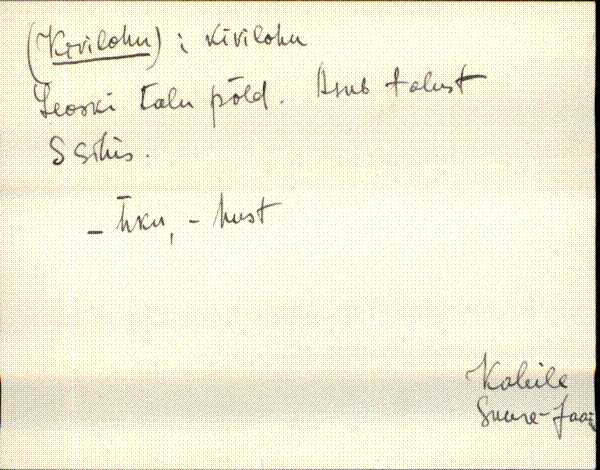 (Kivilohu) : kivilohu
Leoski talu põld. Asub talust
S sihis.
- hku, - hust
Kabila
Suure-Jaa